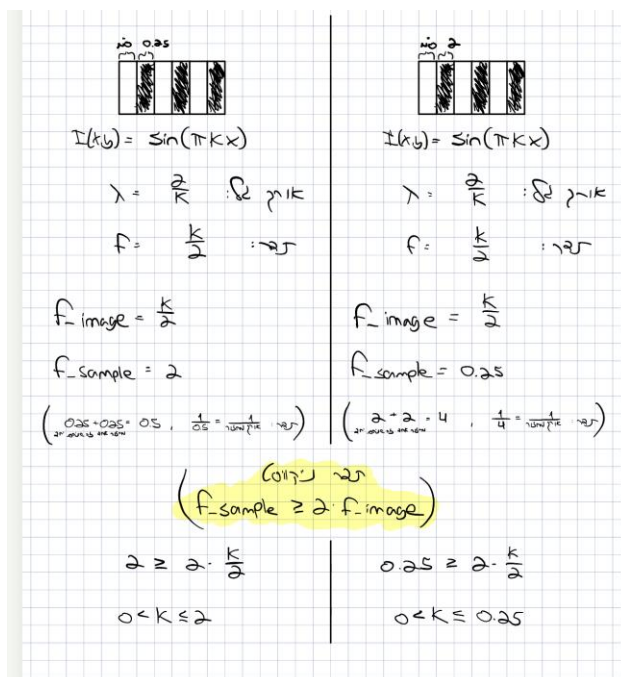 0.25
I(x,y) = sin(πKx)
λ = 2/K אורך גל:
f = K/2 תדר:
f_image = K/2
f_sample = 2
(0.25+0.25 = 0.5, 1/0.5 = 1/אורך המחזור = תדר)
2
I(x,y) = sin(πKx)
λ = 2/K אורך גל:
f = K/2 תדר:
f_image = K/2
f_sample = 0.25
(2+2 = 4, 1/4 = 1/אורך המחזור = תדר)
תדר
(f_sample ≥ 2·f_image)
2 ≥ 2·K/2
0<K≤2
0.25 ≥ 2·K/2
0<K≤0.25